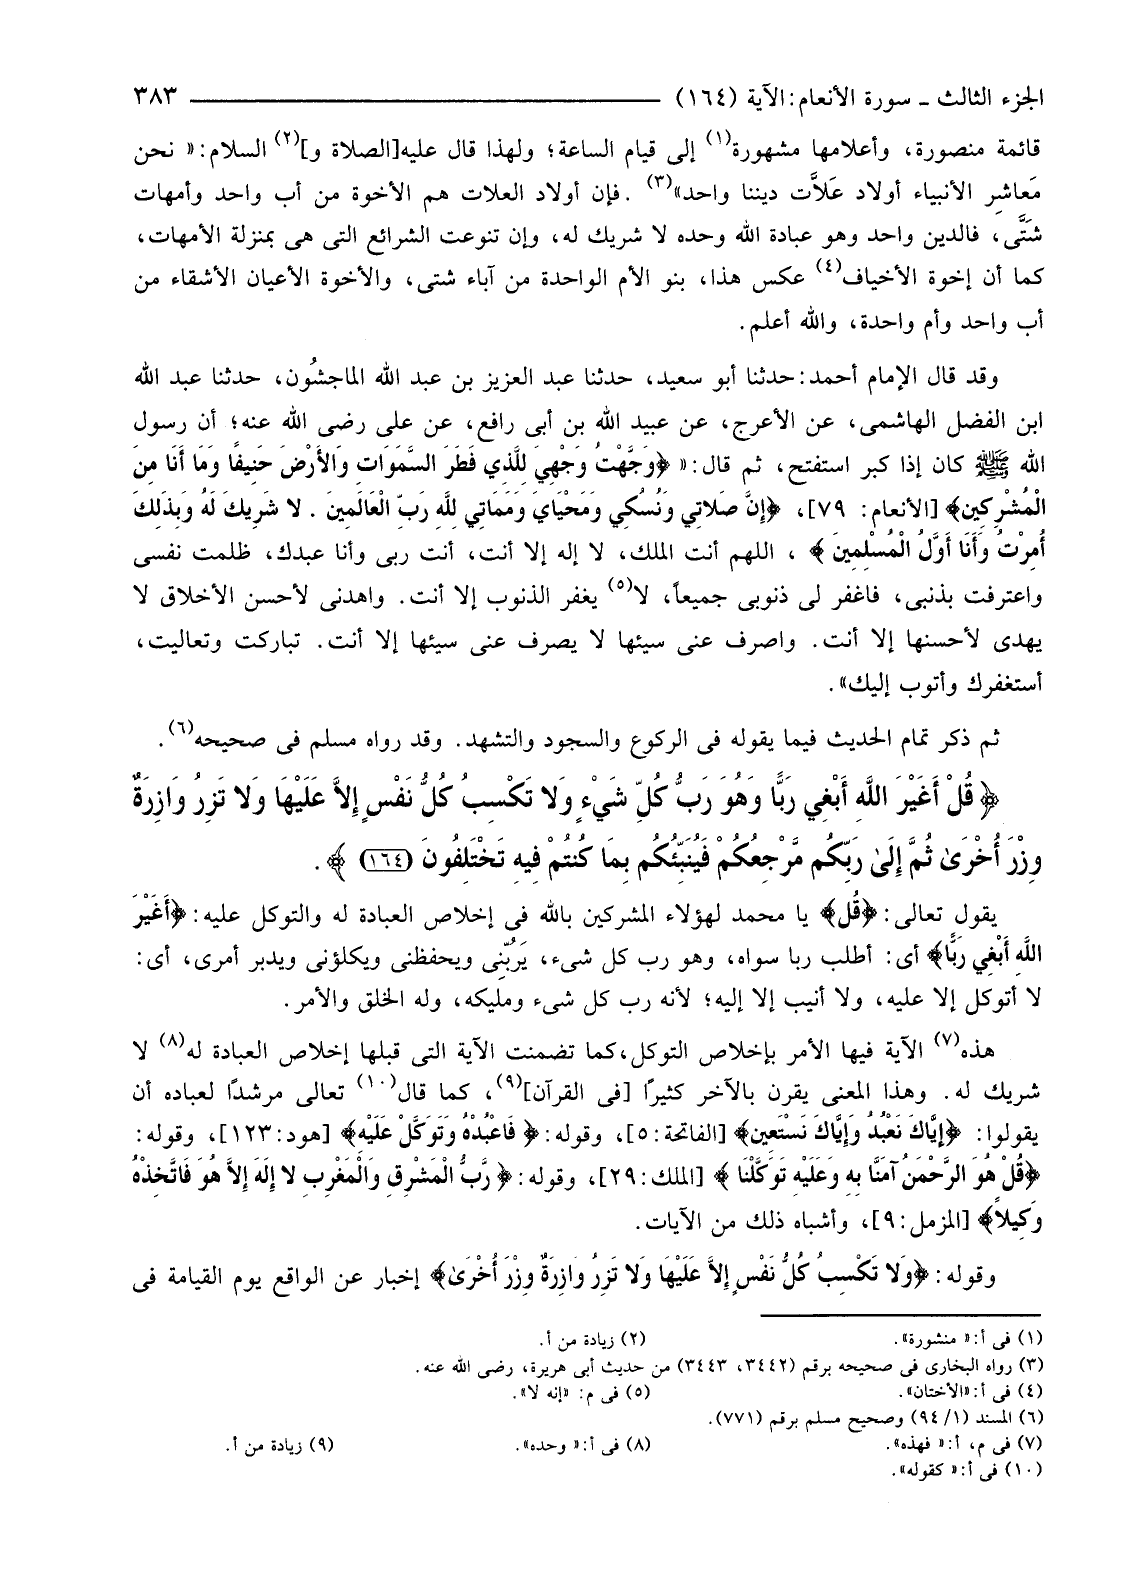 الجزء الثالث ـ سورة الأنعام: الآية (١٦٤) ٣٨٣
قائمة منصورة، وأعلامها مشهورة(١) إلى قيام الساعة؛ ولهذا قال عليه[الصلاة و](٢) السلام: « نحن
مَعاشِر الأنبياء أولاد عَلاَّت ديننا واحد»(٣) .فإن أولاد العلات هم الأخوة من أب واحد وأمهات
شَتَّى، فالدين واحد وهو عبادة الله وحده لا شريك له، وإن تنوعت الشرائع التى هى بمنزلة الأمهات،
كما أن إخوة الأخياف(٤) عكس هذا، بنو الأم الواحدة من آباء شتى، والأخوة الأعيان الأشقاء من
أب واحد وأم واحدة، والله أعلم.
وقد قال الإمام أحمد: حدثنا أبو سعيد، حدثنا عبد العزيز بن عبد الله الماجشُون، حدثنا عبد الله
ابن الفضل الهاشمى، عن الأعرج، عن عبيد الله بن أبى رافع، عن على رضى الله عنه؛ أن رسول
الله ﷺ كان إذا كبر استفتح، ثم قال: « ﴿وَجَّهْتُ وَجْهِيَ لِلَّذِي فَطَرَ السَّمَوَاتِ وَالأَرْضَ حَنِيفًا وَمَا أَنَا مِنَ
الْمُشْرِكِينَ﴾ [الأنعام: ٧٩]، ﴿إِنَّ صَلاتِي وَنُسُكِي وَمَحْيَايَ وَمَمَاتِي لِلَّهِ رَبِّ الْعَالَمِينَ . لا شَرِيكَ لَهُ وَبِذَلِكَ
أُمِرْتُ وَأَنَا أَوَّلُ الْمُسْلِمِينَ ﴾ ، اللهم أنت الملك، لا إله إلا أنت، أنت ربى وأنا عبدك، ظلمت نفسى
واعترفت بذنبى، فاغفر لى ذنوبى جميعاً، لا(٥) يغفر الذنوب إلا أنت. واهدنى لأحسن الأخلاق لا
يهدى لأحسنها إلا أنت. واصرف عنى سيئها لا يصرف عنى سيئها إلا أنت. تباركت وتعاليت،
أستغفرك وأتوب إليك».
ثم ذكر تمام الحديث فيما يقوله فى الركوع والسجود والتشهد. وقد رواه مسلم فى صحيحه(٦).
﴿قُلْ أَغَيْرَ اللَّهِ أَبْغِي رَبًّا وَهُوَ رَبُّ كُلِّ شَيْءٍ وَلا تَكْسِبُ كُلُّ نَفْسٍ إِلاَّ عَلَيْهَا وَلا تَزِرُ وَازِرَةٌ
وِزْرَ أُخْرَىٰ ثُمَّ إِلَىٰ رَبِّكُم مَّرْجِعُكُمْ فَيُنَبِّئُكُم بِمَا كُنتُمْ فِيهِ تَخْتَلِفُونَ (١٦٤) ﴾ .
يقول تعالى: ﴿قُلْ﴾ يا محمد لهؤلاء المشركين بالله فى إخلاص العبادة له والتوكل عليه: ﴿أَغَيْرَ
اللَّهِ أَبْغِي رَبًّا﴾ أى: أطلب ربا سواه، وهو رب كل شىء، يَرُبّنِى ويحفظنى ويكلؤنى ويدبر أمرى، أى:
لا أتوكل إلا عليه، ولا أنيب إلا إليه؛ لأنه رب كل شىء ومليكه، وله الخلق والأمر.
هذه(٧) الآية فيها الأمر بإخلاص التوكل،كما تضمنت الآية التى قبلها إخلاص العبادة له(٨) لا
شريك له. وهذا المعنى يقرن بالآخر كثيرًا [فى القرآن](٩)، كما قال(١٠) تعالى مرشدًا لعباده أن
يقولوا: ﴿إِيَّاكَ نَعْبُدُ وَإِيَّاكَ نَسْتَعِين﴾ [الفاتحة:٥]، وقوله: ﴿ فَاعْبُدْهُ وَتَوَكَّلْ عَلَيْهِ﴾ [هود: ١٢٣]، وقوله:
﴿قُلْ هُوَ الرَّحْمَنُ آمَنَّا بِهِ وَعَلَيْهِ تَوَكَّلْنَا ﴾ [الملك: ٢٩]، وقوله: ﴿ رَبُّ الْمَشْرِقِ وَالْمَغْرِبِ لا إِلَهَ إِلاَّ هُوَ فَاتَّخِذْهُ
وَكِيلاً﴾ [المزمل: ٩]، وأشباه ذلك من الآيات.
وقوله: ﴿وَلا تَكْسِبُ كُلُّ نَفْسٍ إِلاَّ عَلَيْهَا وَلا تَزِرُ وَازِرَةٌ وِزْرَ أُخْرَىٰ﴾ إخبار عن الواقع يوم القيامة فى
(١) فى أ: « منشورة». (٢) زيادة من أ.
(٣) رواه البخارى فى صحيحه برقم (٣٤٤٢، ٣٤٤٣) من حديث أبى هريرة، رضى الله عنه.
(٤) فى أ: «الأختان». (٥) فى م: «إنه لا».
(٦) المسند (١/ ٩٤) وصحيح مسلم برقم (٧٧١).
(٧) فى م، أ: « فهذه». (٨) فى أ: « وحده». (٩) زيادة من أ.
(١٠) فى أ: « كقوله».